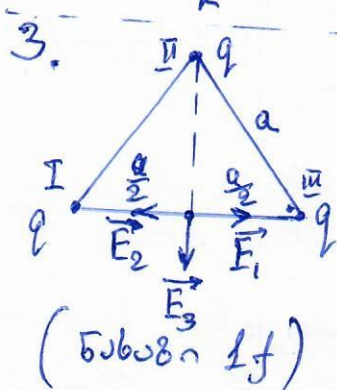 3.
II q
a
I a/2 a/2 III
q E⃗₂ E⃗₁ q
E⃗₃
(ნახაზი 1 ქ)